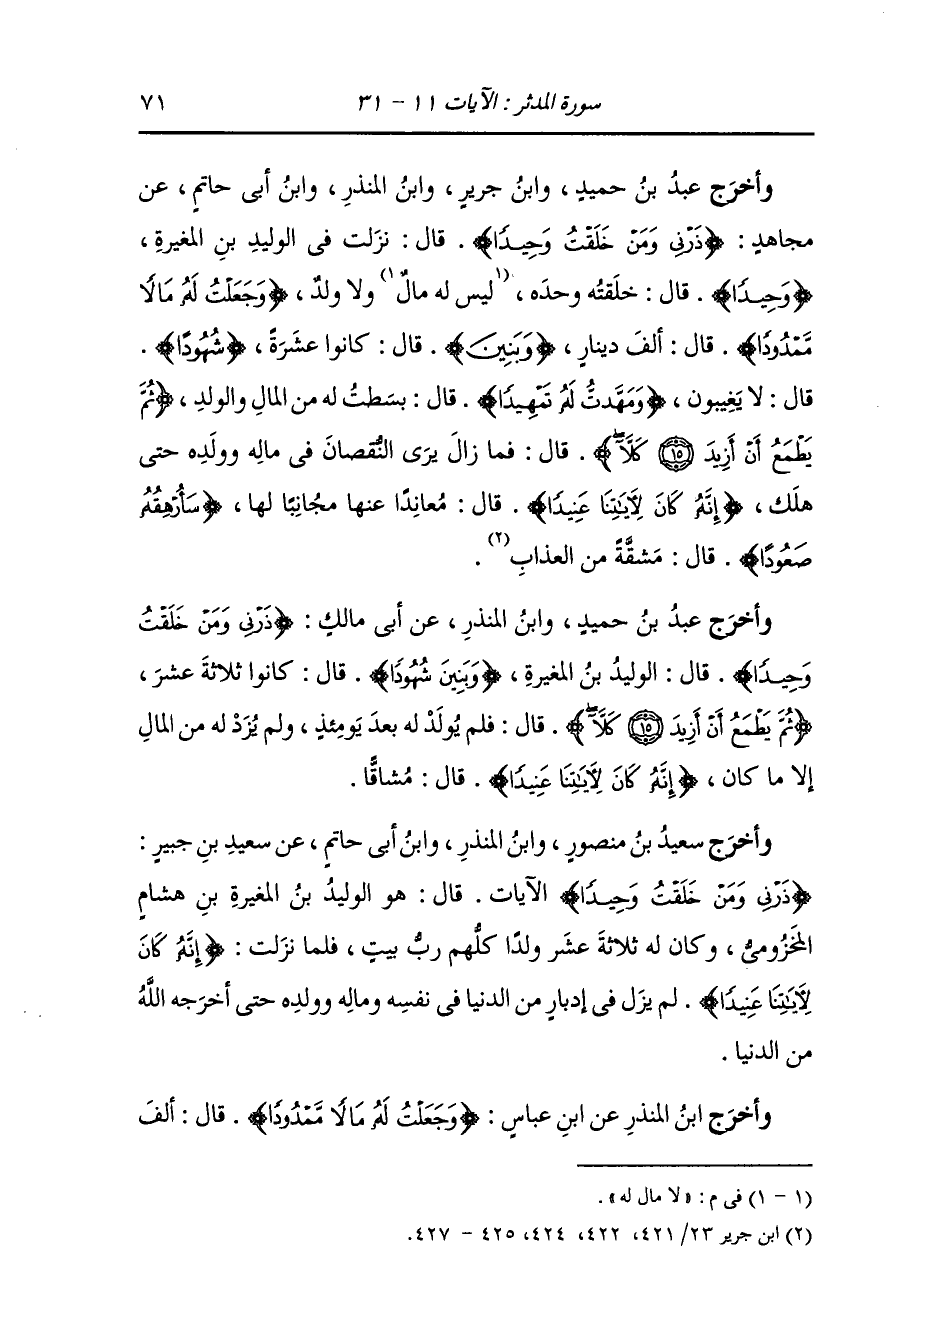 سورة المدثر : الآيات ١١ - ٣١ ٧١
وأخرَج عبدُ بنُ حميدٍ ، وابنُ جريرٍ ، وابنُ المنذرِ ، وابنُ أبى حاتمٍ ، عن
مجاهدٍ : ﴿ذَرْنِى وَمَنْ خَلَقْتُ وَحِيدًا﴾ . قال : نزَلت فى الوليدِ بنِ المغيرةِ ،
﴿وَحِيدًا﴾ . قال : خلَقتُه وحدَه ، (١ليس له مالٌ١) ولا ولدٌ ، ﴿وَجَعَلْتُ لَهُ مَالًا
مَّمْدُودًا﴾ . قال : ألفَ دينارٍ ، ﴿وَبَنِينَ﴾ . قال : كانوا عشرَةً ، ﴿شُهُودًا﴾ .
قال : لا يَغِيبون ، ﴿وَمَهَّدتُّ لَهُ تَمْهِيدًا﴾ . قال : بسَطتُ له من المالِ والولدِ ، ﴿ثُمَّ
يَطْمَعُ أَنْ أَزِيدَ ١٥ كَلَّا﴾ . قال : فما زالَ يرَى النُّقصانَ فى مالِه وولَدِه حتى
هلَك ، ﴿إِنَّهُ كَانَ لِآيَاتِنَا عَنِيدًا﴾ . قال : مُعانِدًا عنها مجُانِبًا لها ، ﴿سَأُرْهِقُهُ
صَعُودًا﴾ . قال : مَشقَّةً من العذابِ(٢) .
وأخرَج عبدُ بنُ حميدٍ ، وابنُ المنذرِ ، عن أبى مالكٍ : ﴿ذَرْنِى وَمَنْ خَلَقْتُ
وَحِيدًا﴾ . قال : الوليدُ بنُ المغيرةِ ، ﴿وَبَنِينَ شُهُودًا﴾ . قال : كانوا ثلاثةَ عشرَ ،
﴿ثُمَّ يَطْمَعُ أَنْ أَزِيدَ ١٥ كَلَّا﴾ . قال : فلم يُولَدْ له بعدَ يَومِئذٍ ، ولم يُزَدْ له من المالِ
إلا ما كان ، ﴿إِنَّهُ كَانَ لِآيَاتِنَا عَنِيدًا﴾ . قال : مُشاقًّا .
وأخرَج سعيدُ بنُ منصورٍ ، وابنُ المنذرِ ، وابنُ أبى حاتمٍ ، عن سعيدِ بنِ جبيرٍ :
﴿ذَرْنِى وَمَنْ خَلَقْتُ وَحِيدًا﴾ الآيات . قال : هو الوليدُ بنُ المغيرةِ بنِ هشامٍ
المَخزُومىُّ ، وكان له ثلاثةَ عشَر ولدًا كلُّهم ربُّ بيتٍ ، فلما نزَلت : ﴿إِنَّهُ كَانَ
لِآيَاتِنَا عَنِيدًا﴾ . لم يزَل فى إدبارٍ من الدنيا فى نفسِه ومالِه وولدِه حتى أخرَجه اللَّهُ
من الدنيا .
وأخرَج ابنُ المنذرِ عن ابنِ عباسٍ : ﴿وَجَعَلْتُ لَهُ مَالًا مَّمْدُودًا﴾ . قال : ألفَ
(١ - ١) فى م : «لا مال له» .
(٢) ابن جرير ٢٣/ ٤٢١، ٤٢٢، ٤٢٤، ٤٢٥ - ٤٢٧.